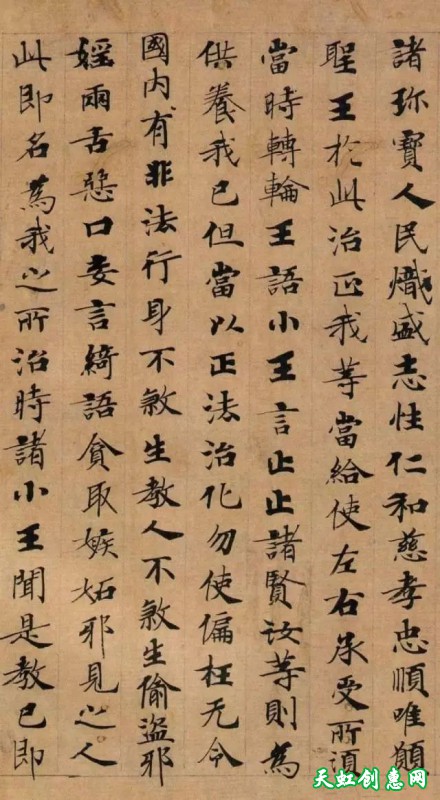 諸珎寶人民熾盛志性仁和慈孝忠順唯願
聖王於此治正我等當給使左右承受所須
當時轉輪王語小王言止止諸賢汝等則為
供養我已但當以正法治化勿使偏枉无令
國内有非法行身不煞生教人不煞生偷盜邪
婬兩舌惡口妄言綺語貪取嫉妬邪見之人
此即名為我之所治時諸小王聞是教已即
天虹创惠网